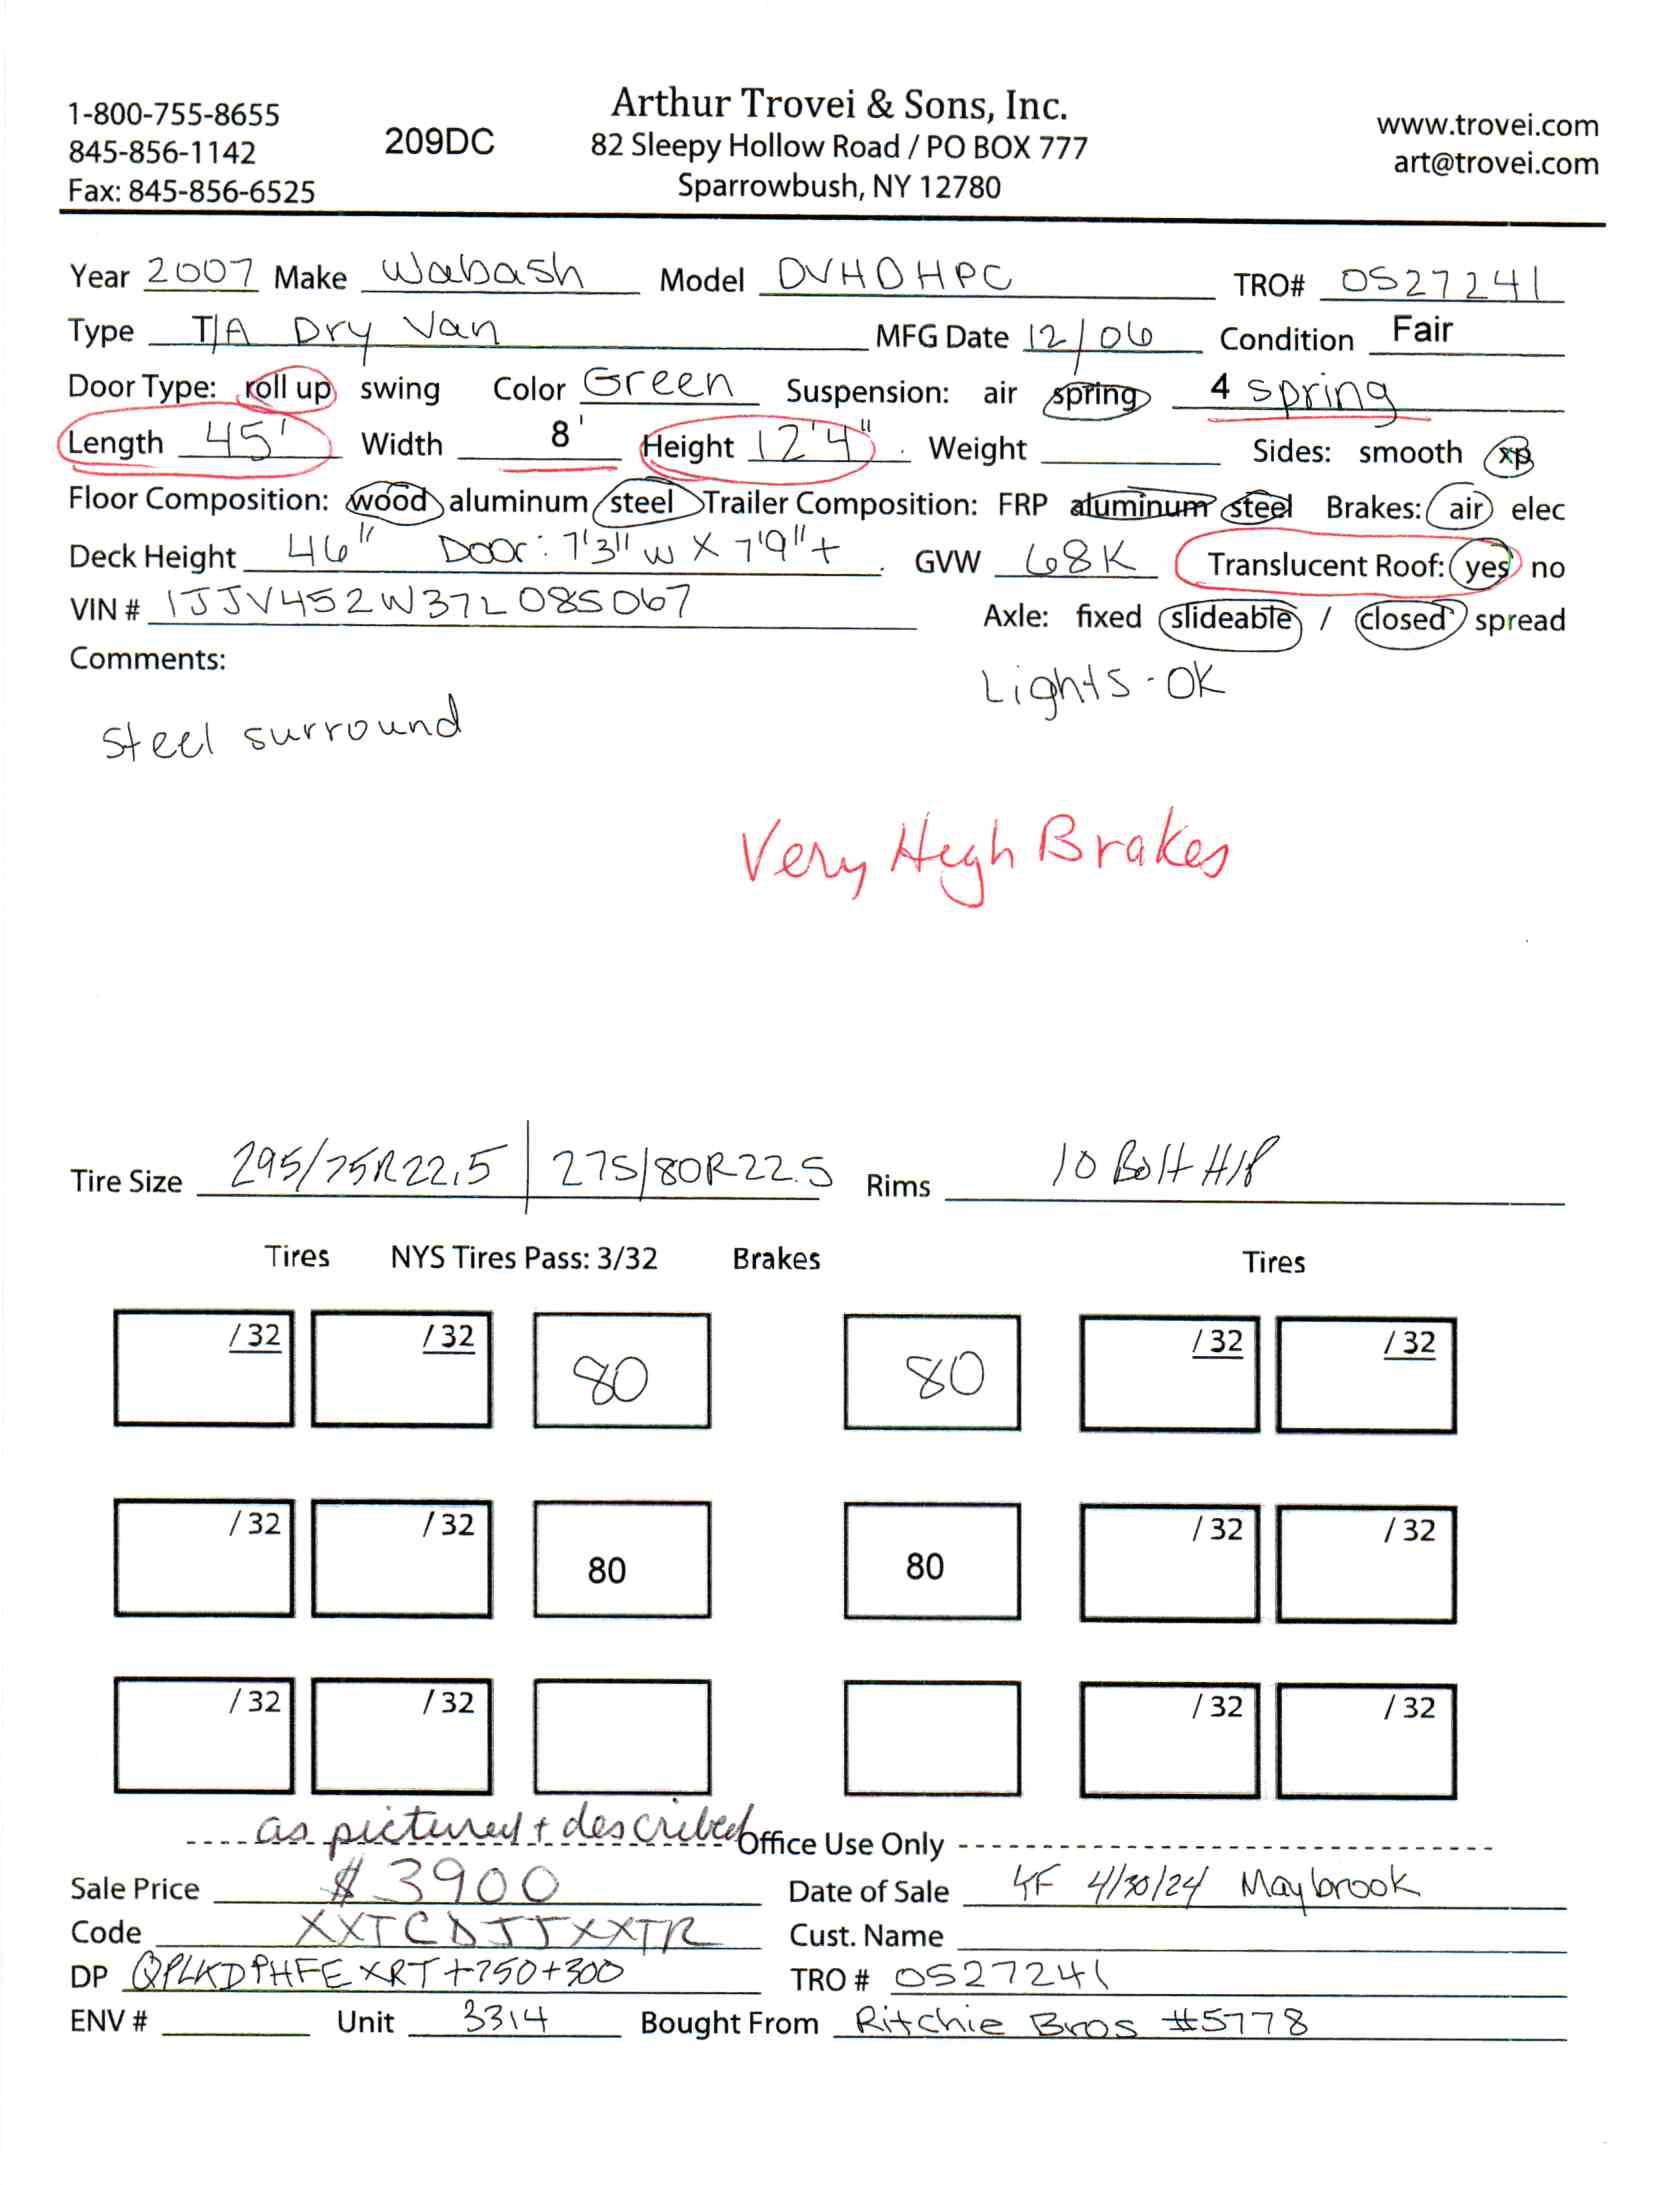 1-800-755-8655
845-856-1142
Fax: 845-856-6525
209DC
Arthur Trovei & Sons, Inc.
82 Sleepy Hollow Road / PO BOX 777
Sparrowbush, NY 12780
www.trovei.com
art@trovei.com
Year 2007 Make Wabash Model DVHDHPC TRO# 0527241
Type T/A Dry Van MFG Date 12/06 Condition Fair
Door Type: roll up swing Color Green Suspension: air spring 4 spring
Length 45' Width 8' Height 12'4" Weight Sides: smooth xp
Floor Composition: wood aluminum steel Trailer Composition: FRP aluminum steel Brakes: air elec
Deck Height 46" Door: 7'3" W X 7'9"+ GVW 68K Translucent Roof: yes no
VIN # 1JJV452W37L085067 Axle: fixed slideable / closed spread
Comments:
Lights - OK
Steel surround
Very High Brakes
Tire Size 295/75R22.5 | 275/80R22.5 Rims 10 Bolt H/P
Tires NYS Tires Pass: 3/32 Brakes Tires
/32 /32 80 80 /32 /32
/32 /32 80 80 /32 /32
/32 /32 /32 /32
as pictured + described Office Use Only
Sale Price $3900 Date of Sale 4/30/24 Maybrook
Code XXTCDJJXXTR Cust. Name
DP QPLKDPHFEXRT+750+300 TRO # 0527241
ENV # Unit 3314 Bought From Ritchie Bros #5778